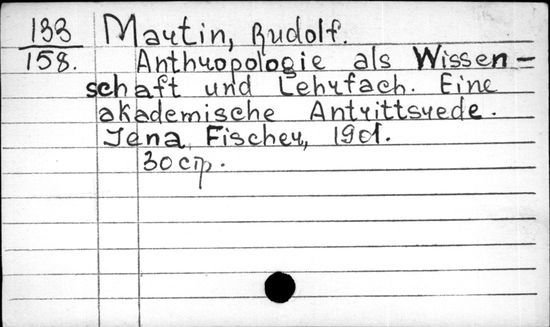 133 Martin, Rudolf.
158. Anthropologie als Wissen-
schaft und Lehrfach. Eine
akademische Antrittsrede.
Jena, Fischer, 1901.
30 стр.